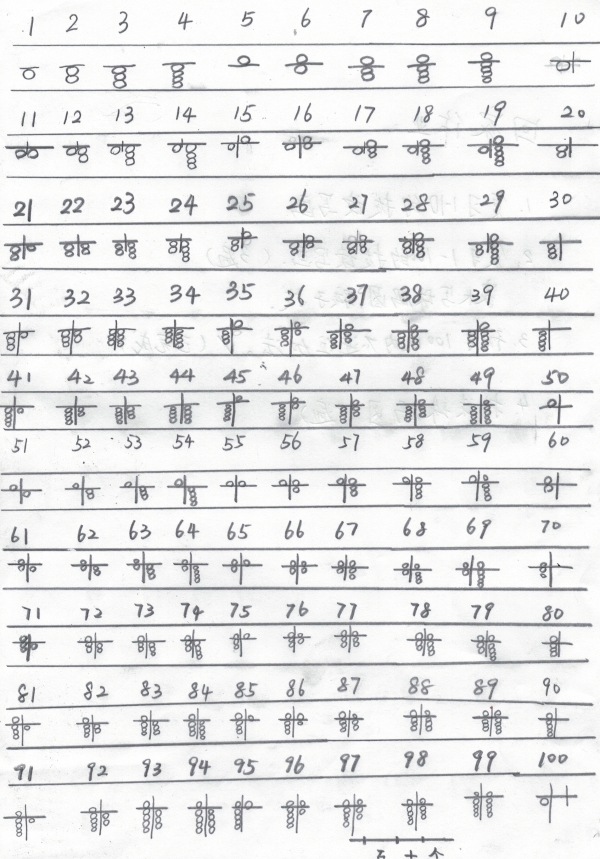 1 2 3 4 5 6 7 8 9 10
11 12 13 14 15 16 17 18 19 20
21 22 23 24 25 26 27 28 29 30
31 32 33 34 35 36 37 38 39 40
41 42 43 44 45 46 47 48 49 50
51 52 53 54 55 56 57 58 59 60
61 62 63 64 65 66 67 68 69 70
71 72 73 74 75 76 77 78 79 80
81 82 83 84 85 86 87 88 89 90
91 92 93 94 95 96 97 98 99 100
百 十 个